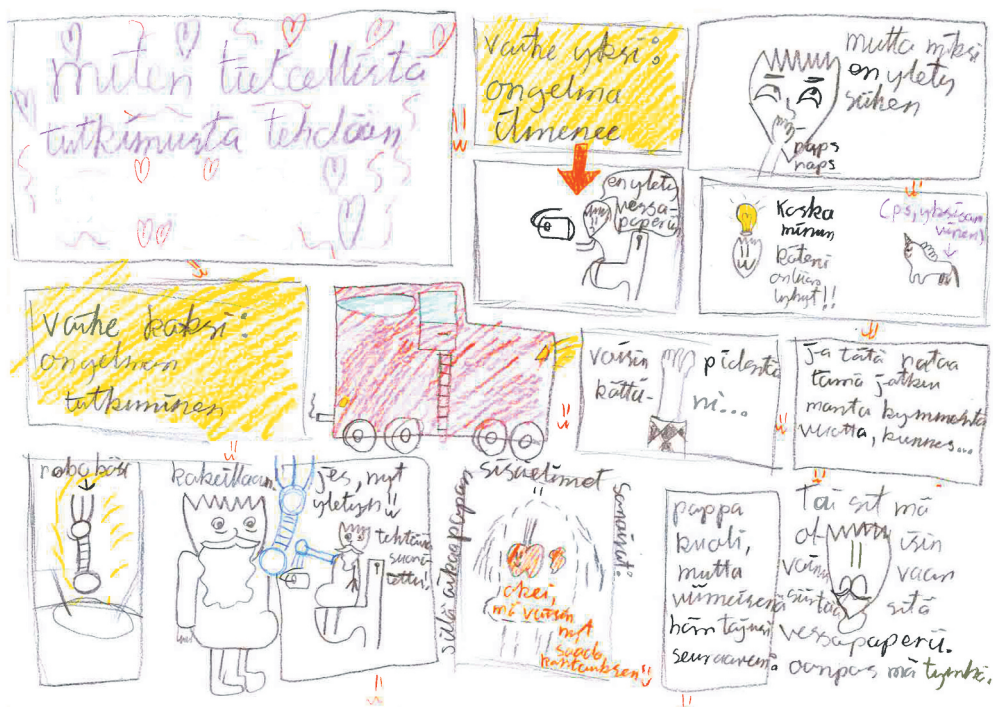 miten tieteellistä
tutkimusta tehdään
vaihe yksi:
ongelma
ilmenee
mutta miksi
en yletys
siihen
naps
naps
en yletys
vessa-
paperiin
Koska
minun
käteni
on liian
lyhyt!!
(ps, yksisar-
vinen)
vaihe kaksi:
ongelman
tutkiminen
voisin
pidentä
kättä-
ni...
ja tätä rataa
tämä jatkuu
monta kymmentä
vuotta, kunnes...
robokäsi
kokeillaan.
jes, nyt
yletyn!!
tehtävä
suori-
tettu!
sillä aikaa papan
sisäelimet
sanoivat:
okei,
mä voisin
nyt
saada
kohtauksen!!
pappa
kuoli,
mutta
viimeisenä
hän tajusi
seuraavan:
Tai sit mä
oisin
voinu vaan
siirtää sitä
vessapaperii.
oonpas mä tyhmä.